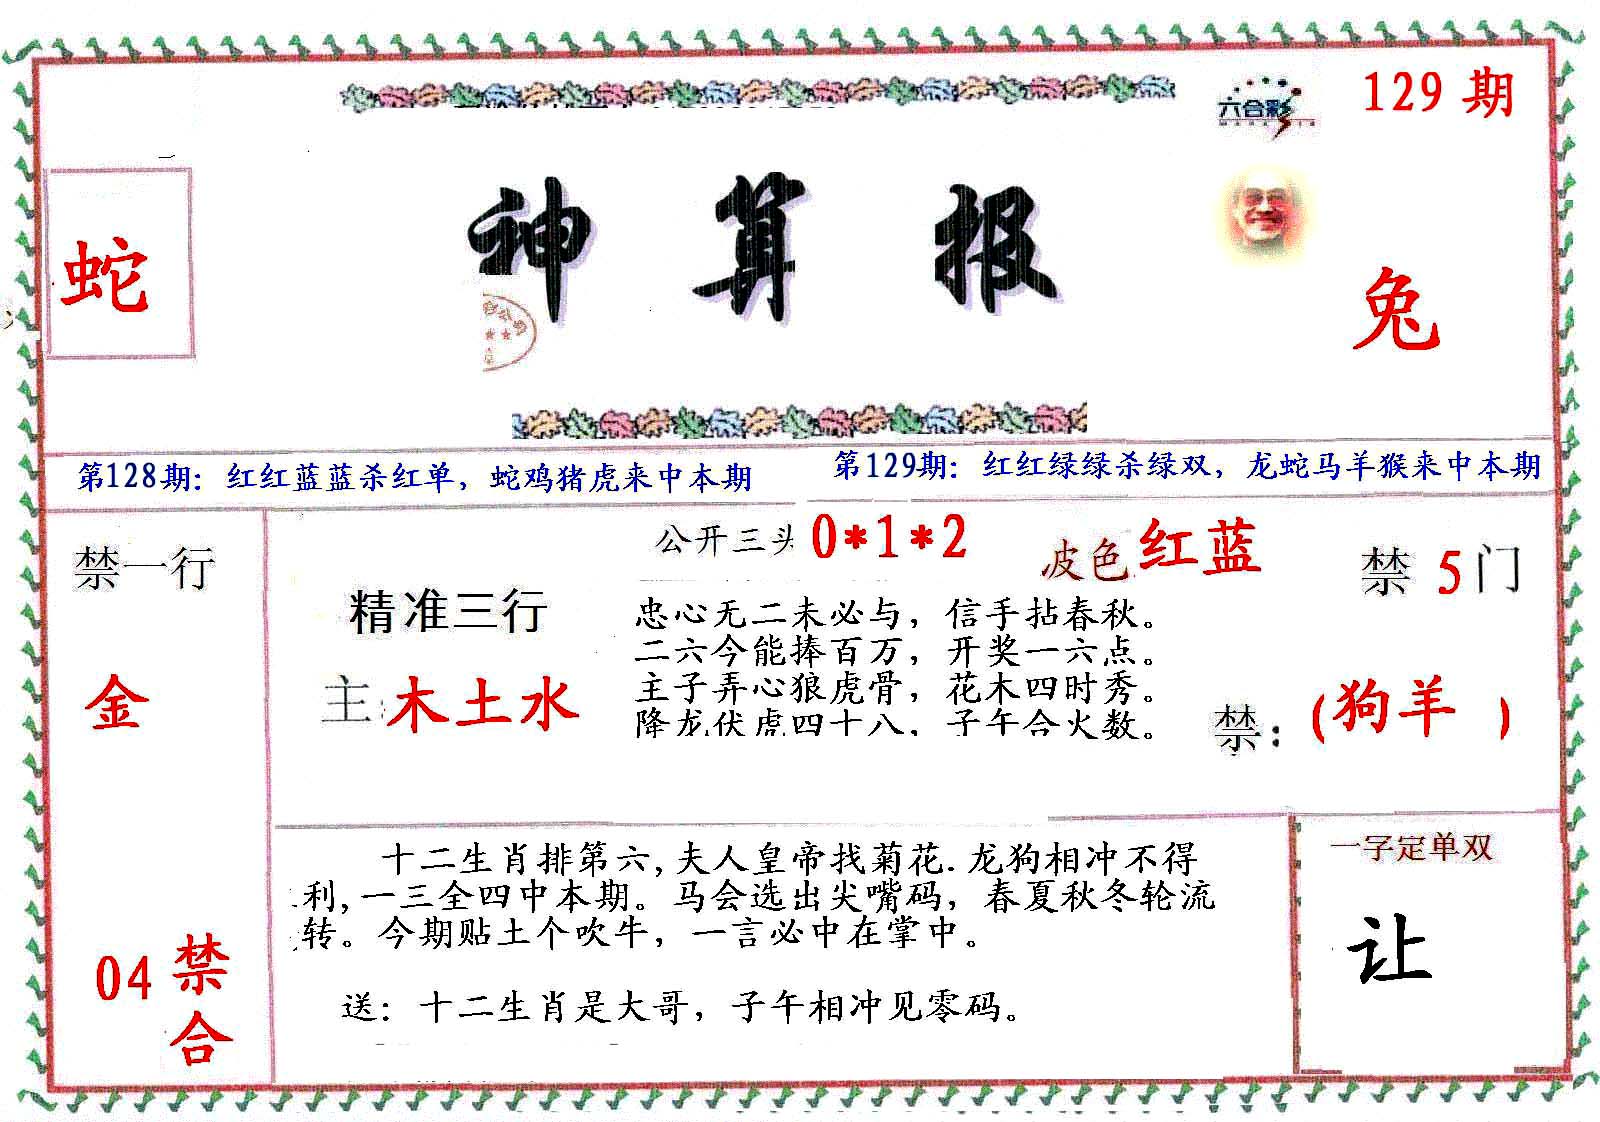 129 期
六合彩
神算报
蛇
兔
第128期：红红蓝蓝杀红单，蛇鸡猪虎来中本期
第129期：红红绿绿杀绿双，龙蛇马羊猴来中本期
禁一行
金
04 禁合
精准三行
主：木土水
公开三头 0*1*2
波色 红蓝
禁 5 门
忠心无二未必与，信手拈春秋。
二六今能捧百万，开奖一六点。
主子弄心狼虎骨，花木四时秀。
降龙伏虎四十八，子午合火数。
禁：(狗羊 )
十二生肖排第六,夫人皇帝找菊花.龙狗相冲不得
利,一三全四中本期。马会选出尖嘴码，春夏秋冬轮流
转。今期贴士个吹牛，一言必中在掌中。
送：十二生肖是大哥，子午相冲见零码。
一字定单双
让